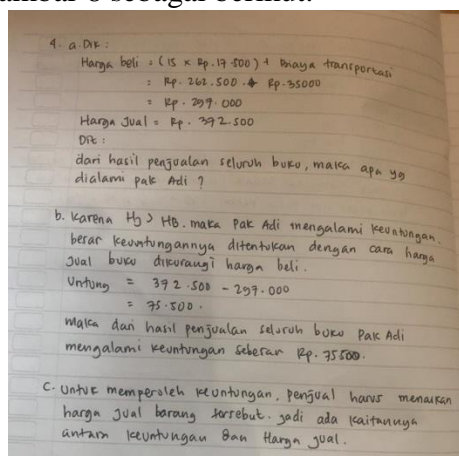 ambar 6 sebagai berikut.
4. a. Dik :
Harga beli = (15 x Rp. 17.500) + Biaya transportasi
= Rp. 262.500 + Rp. 35000
= Rp. 297.000
Harga Jual = Rp. 372.500
Dit :
dari hasil penjualan seluruh buku, maka apa yg
dialami pak Adi ?
b. Karena HJ > HB. maka Pak Adi mengalami keuntungan.
besar keuntungannya ditentukan dengan cara harga
jual buku dikurangi harga beli.
Untung = 372.500 - 297.000
= 75.500.
Maka dari hasil penjualan seluruh buku Pak Adi
mengalami keuntungan sebesar Rp. 75500.
C. Untuk memperoleh keuntungan, penjual harus menaikan
harga jual barang tersebut. jadi ada kaitannya
antara keuntungan dan Harga jual.